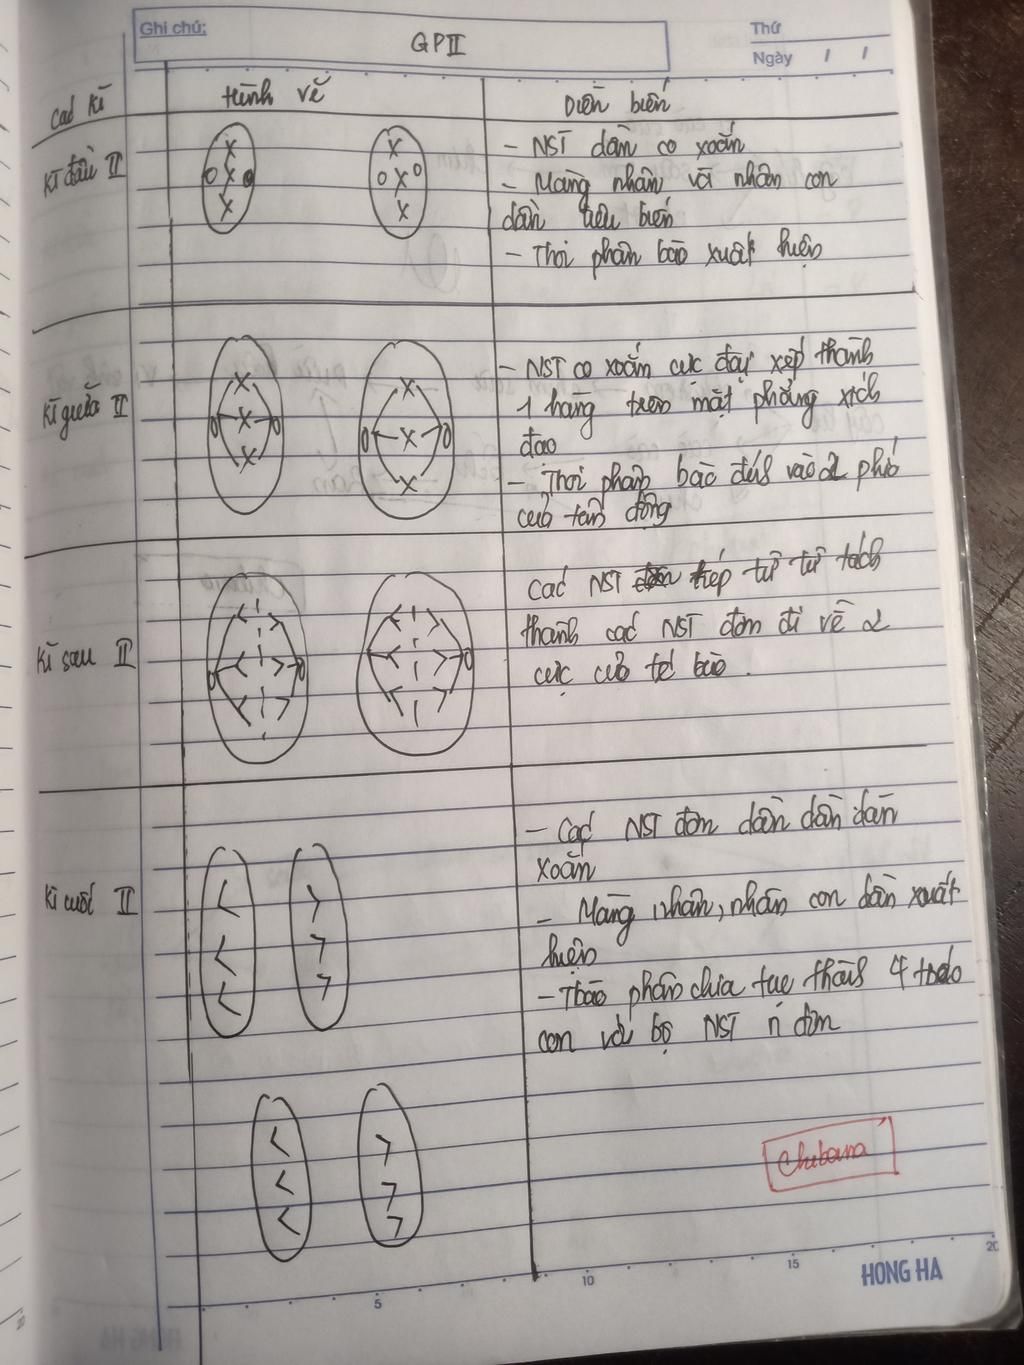 Ghi chú:
GPII
Thứ
Ngày / /
Các kì
Hình vẽ
Diễn biến
Kì đầu II
- NST dần co xoắn
- Màng nhân và nhân con
dần tiêu biến
- Thoi phân bào xuất hiện
Kì giữa II
- NST co xoắn cực đại xếp thành
1 hàng trên mặt phẳng xích
đạo
- Thoi phân bào đính vào 2 phía
của tâm động
Kì sau II
Các NST kép từ từ tách
thành các NST đơn đi về 2
cực của tế bào.
Kì cuối II
- Các NST đơn dần dần dãn
xoắn
- Màng nhân, nhân con dần xuất
hiện
- Tbào phân chia tạo thành 4 tbào
con với bộ NST n đơn
5
10
15
20
HONG HA